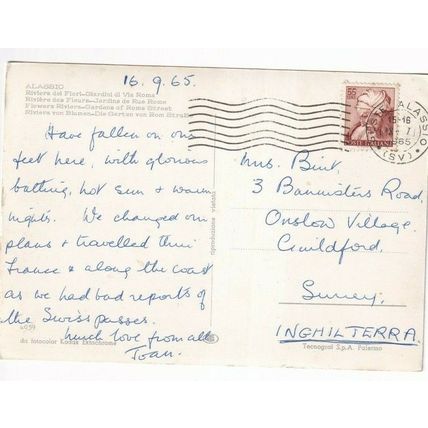 16.9.65.
ALASSIO
Riviera dei Fiori-Giardini di Via Roma
Rivière des Fleurs-Jardins de Rue Rome
Flowers Riviera-Gardens of Rome Street
Riviera von Blumen-Die Garten von Rom Straß
Have fallen on our
feet here, with glorious
bathing, hot sun & warm
nights. We changed our
plans & travelled thru'
France & along the coast
as we had bad reports of
the Swiss passes.
Much love from all
Joan.
4059
dit. fotocolor Kodak Ektachrome
riproduzione vietata
55
POSTE ITALIANE
ALASSIO
15-16
1965
(SV)
Mrs. Birt,
3 Bannisters Road,
Onslow Village.
Guildford.
Surrey.
INGHILTERRA.
Tecnograf S.p.A. Palermo